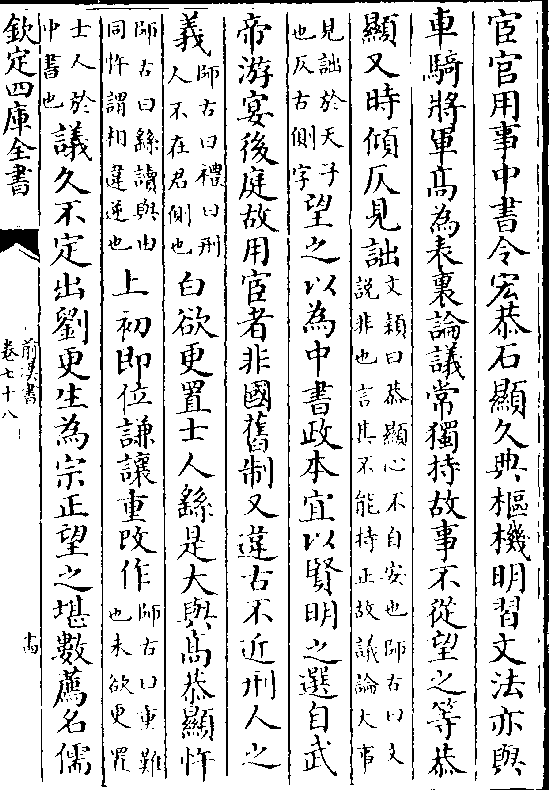 宦官用事中書令宏恭石顯久典樞機明習文法亦與
車騎將軍髙為表裏論議常獨持故事不從望之等恭
顯又時傾仄見詘文穎曰恭顯心不自安也師古曰文
說非也言其不能持正故議論大事
見詘於天子
也仄古側字望之以為中書政本宜以賢明之選自武
帝游宴後庭故用宦者非國舊制又違古不近刑人之
義師古曰禮曰刑
人不在君側也白欲更置士人繇是大與髙恭顯忤
師古曰繇讀與由
同忤謂相違逆也上初即位謙讓重改作師古曰重難
也未欲更置
士人於
中書也議久不定出劉更生為宗正望之堪數薦名儒
欽定四庫全書
前漢書
卷七十八